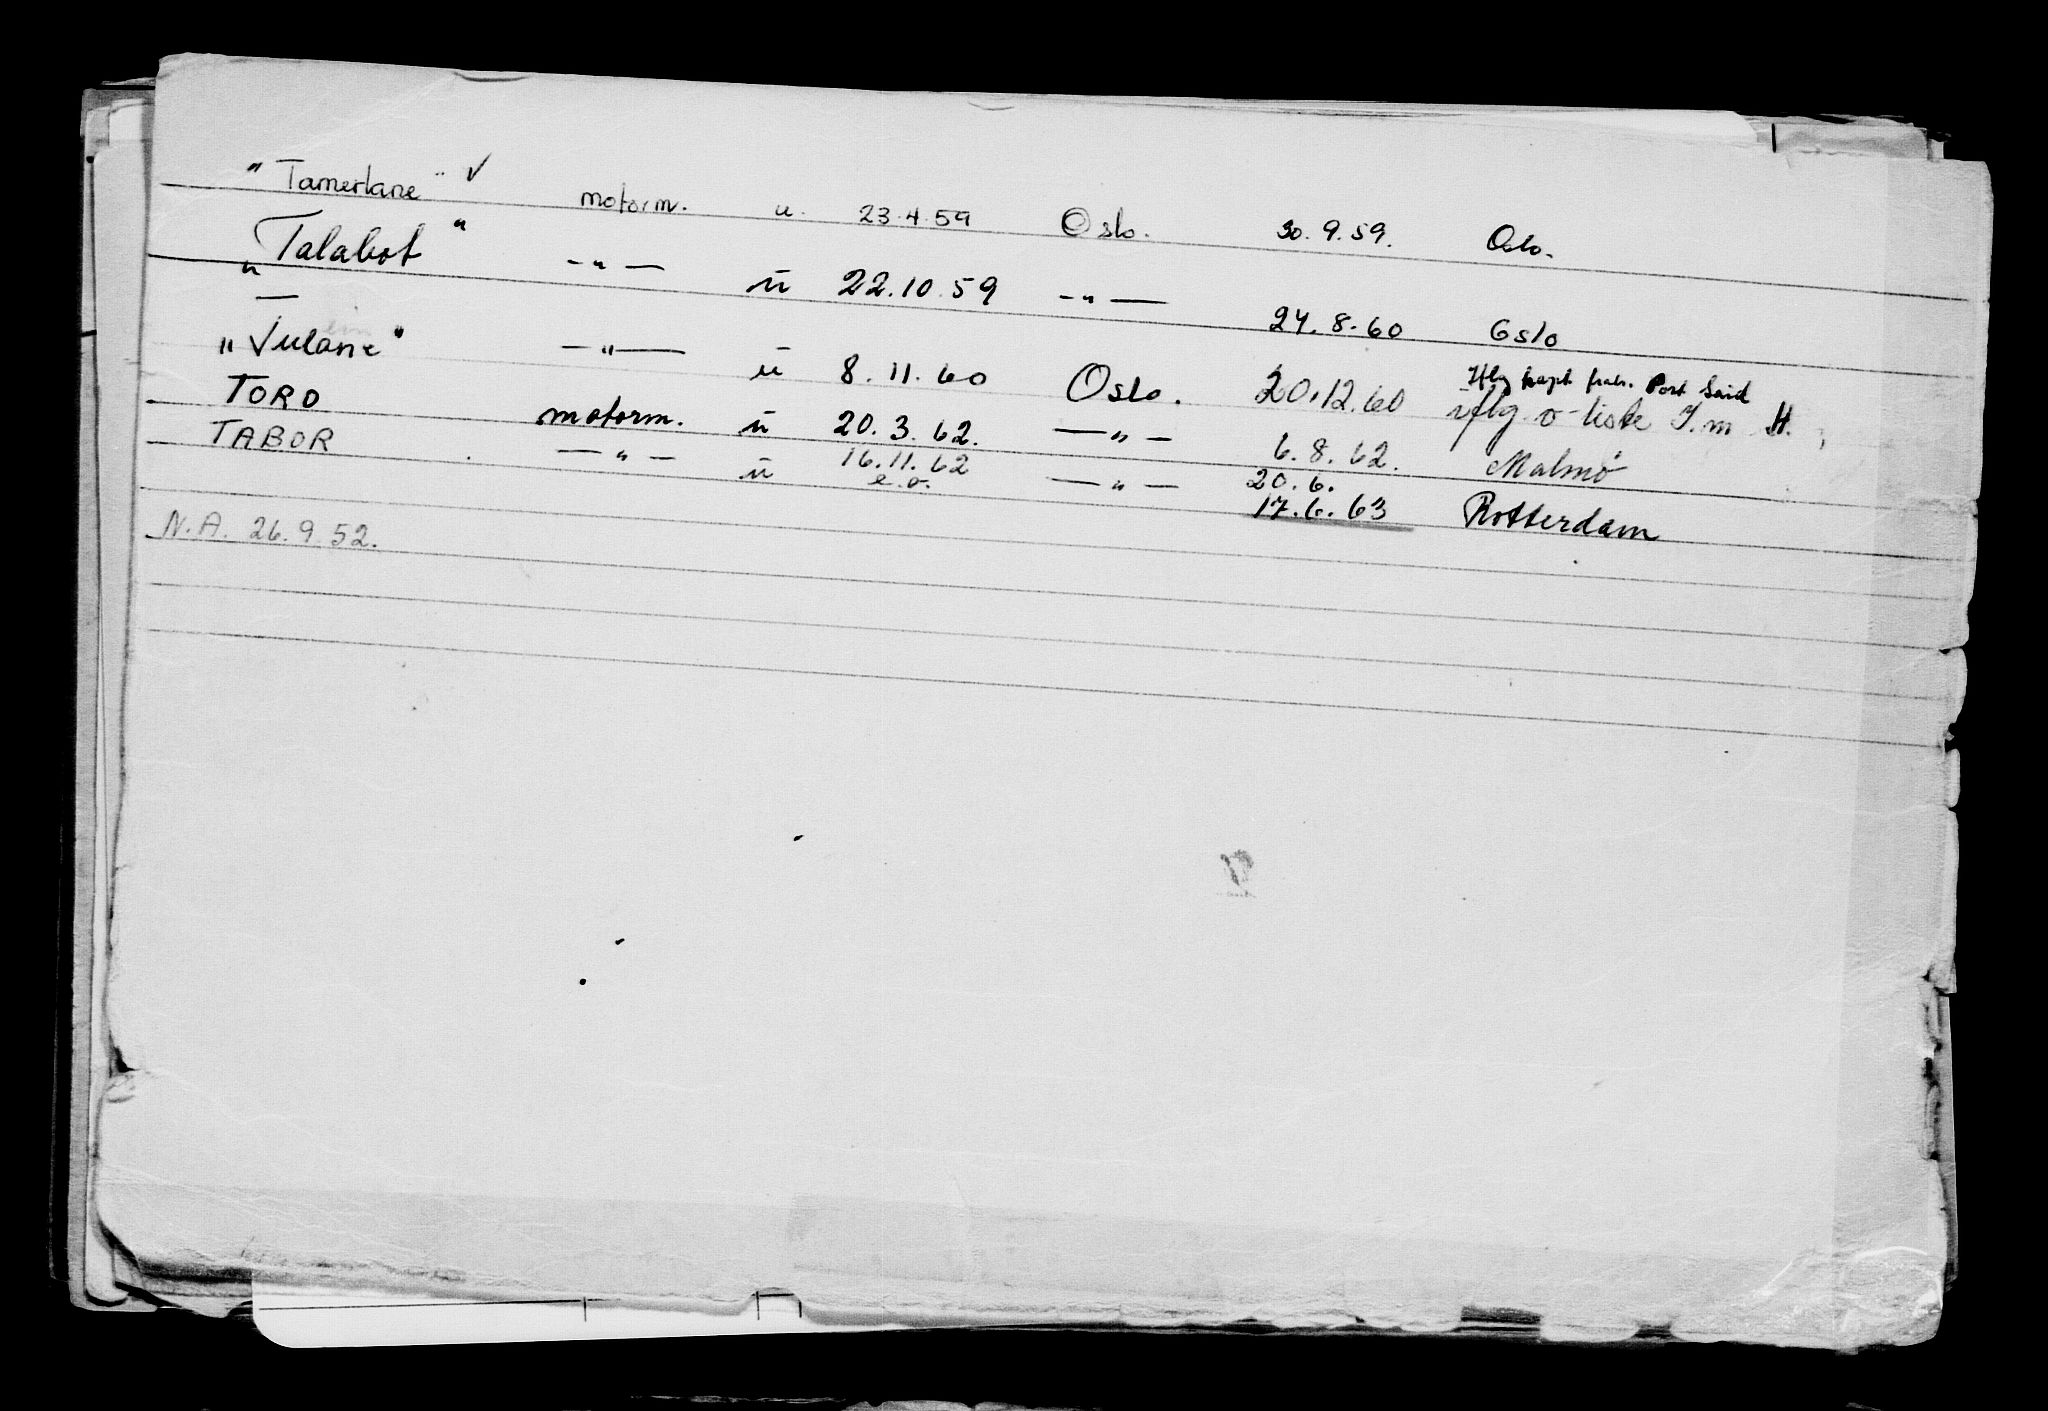 "Tamerlane" ✓ motorm. u. 23.4.59 Oslo. 30.9.59. Oslo.
"Talabot" —"— u 22.10.59 —"— 24.8.60 Oslo
"Tulane" —"— u 8.11.60 Oslo. 20.12.60 Iflg kapt Port Said
iflg o-liste I.m H.
TORO motorm. u 20.3.62. —"— 6.8.62. Malmö
TABOR —"— u 16.11.62 —"— 20.6.
e.o. 17.6.63 Rotterdam
N.A. 26.9.52.